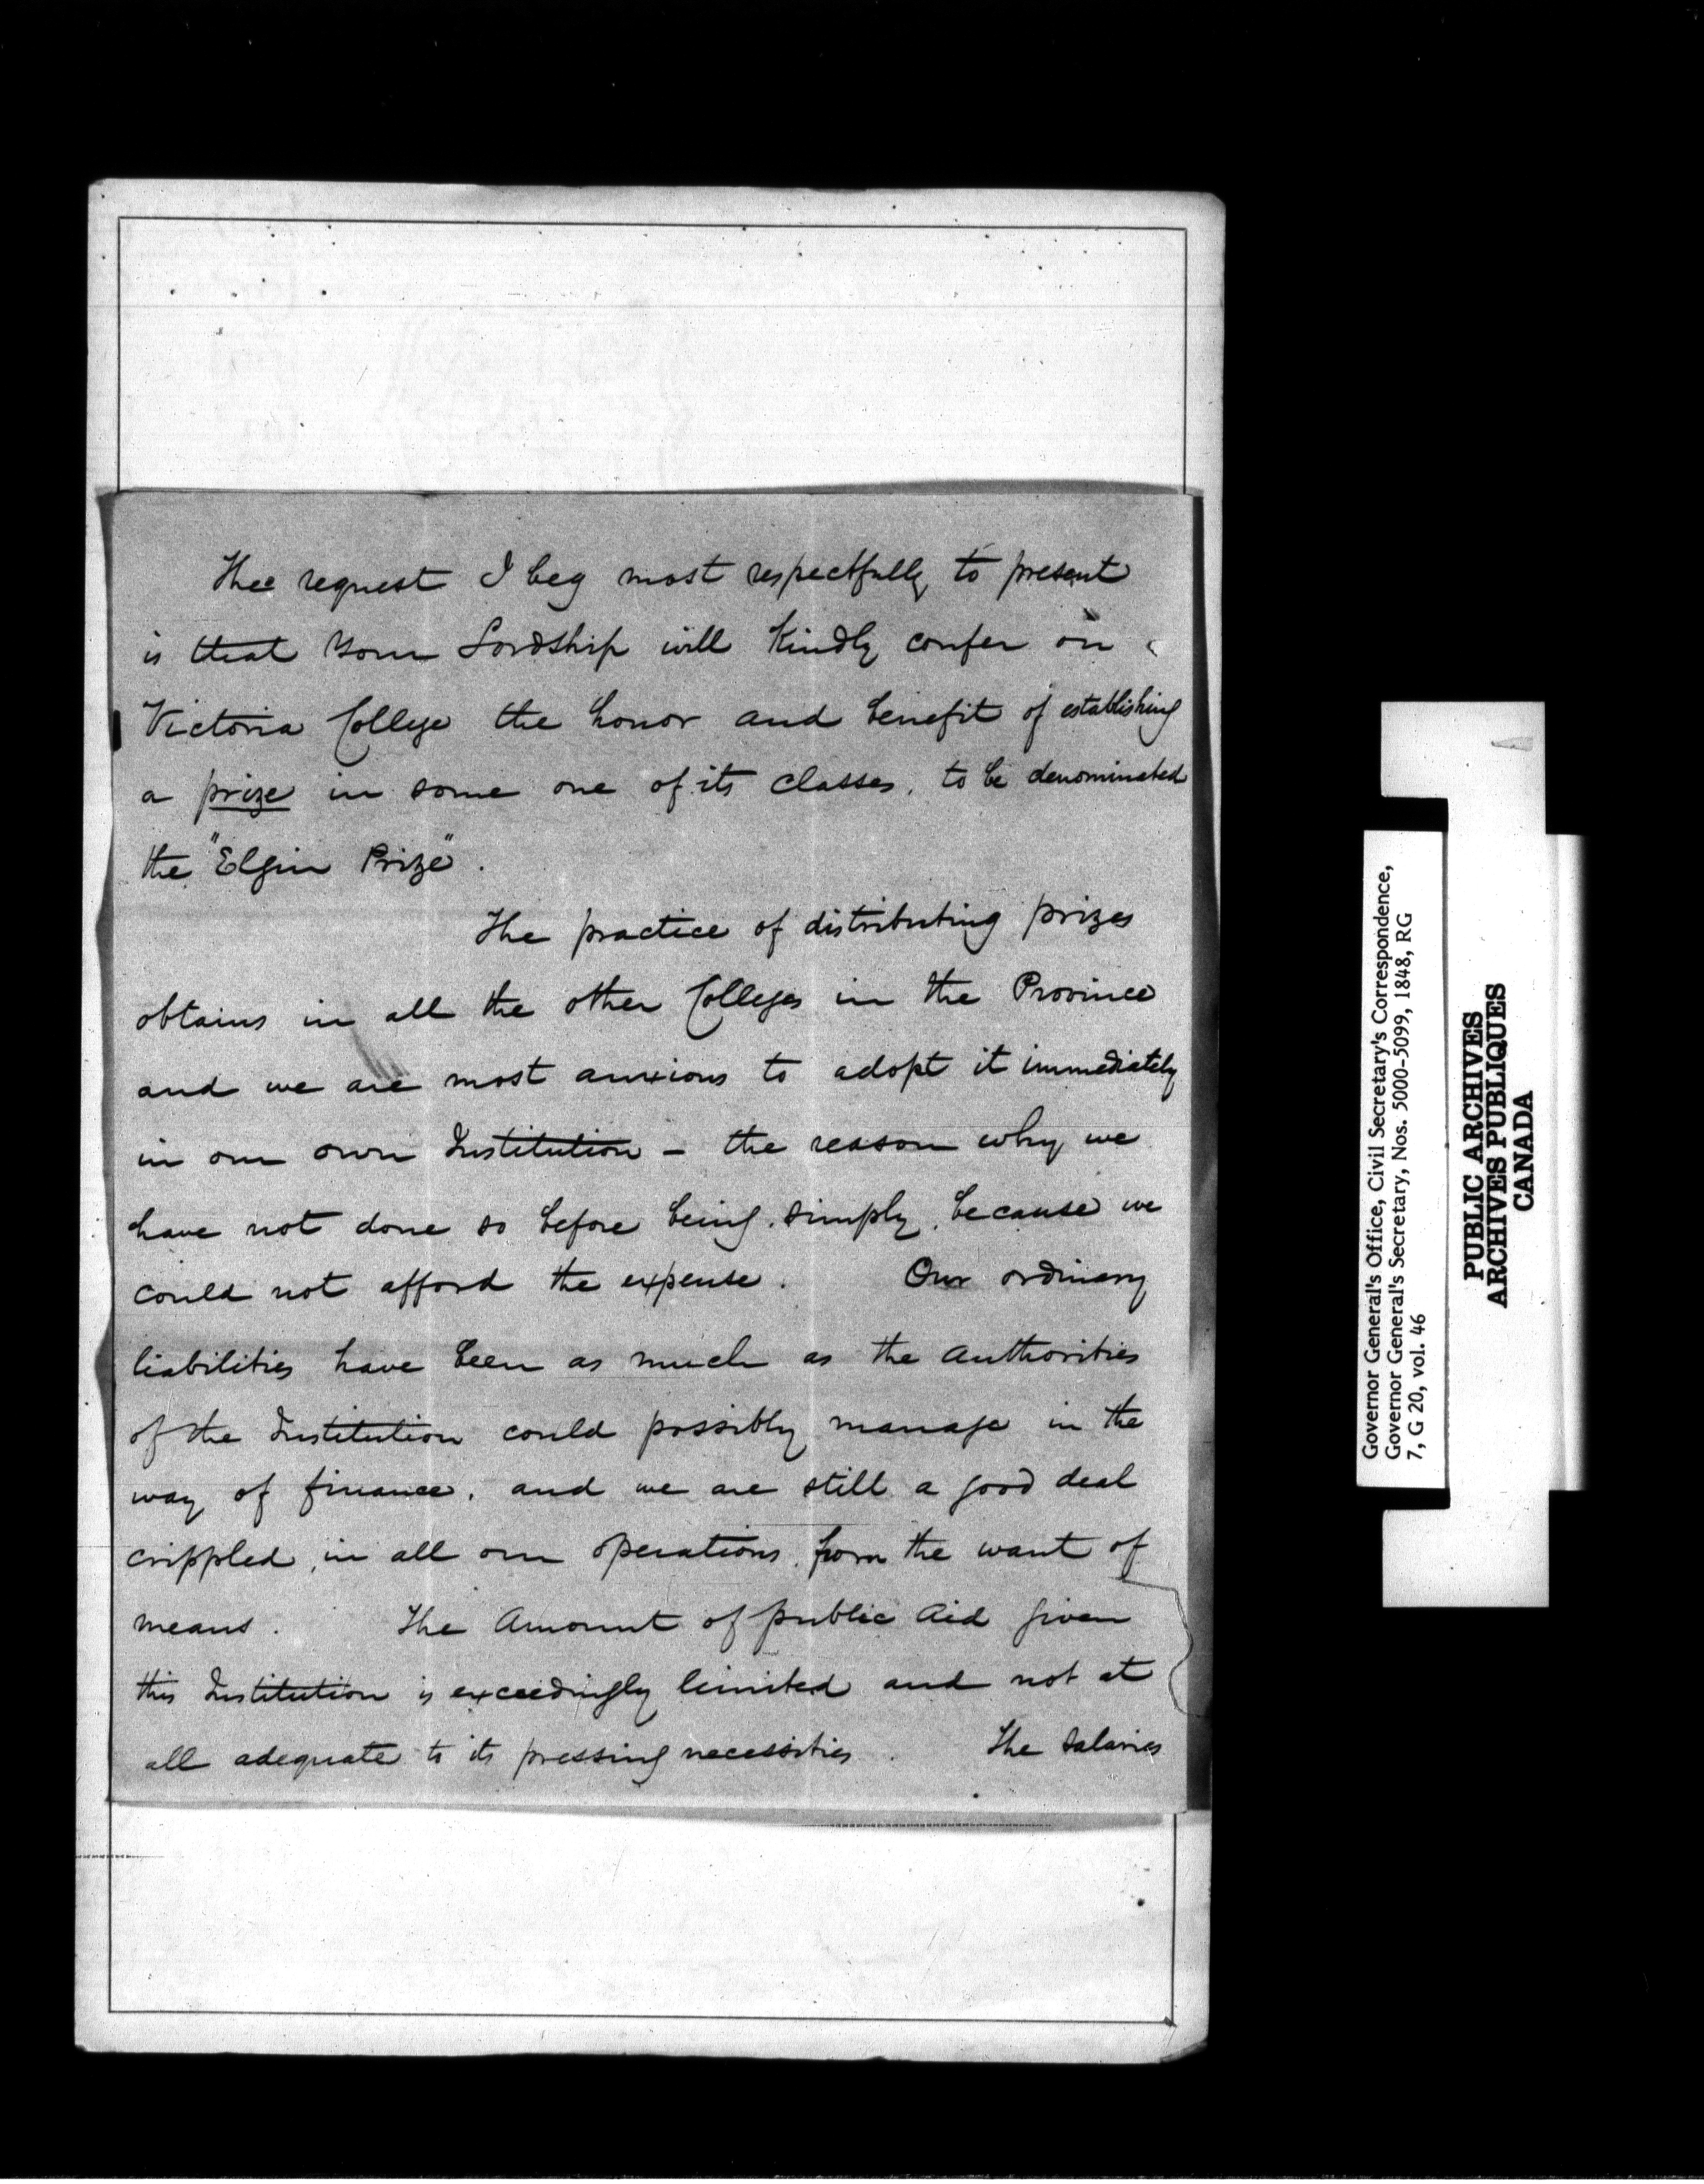 The request I beg most respectfully to present
is that Your Lordship will kindly confer on
Victoria College the honor and benefit of establishing
a prize in some one of its classes, to be denominated
the "Elgin Prize".
The practice of distributing prizes
obtains in all the other Colleges in the Province
and we are most anxious to adopt it immediately
in our own Institution - the reason why we
have not done so before being, simply, because we
could not afford the expense. Our ordinary
liabilities have been as much as the Authorities
of the Institution could possibly manage in the
way of finance, and we are still a good deal
crippled, in all our operations, from the want of
means. The Amount of public Aid given
this Institution is exceedingly limited and not at
all adequate to its pressing necessities. The Salaries
Governor General's Office, Civil Secretary's Correspondence,
Governor General's Secretary, Nos. 5000-5099, 1848, RG
7, G 20, vol. 46
PUBLIC ARCHIVES
ARCHIVES PUBLIQUES
CANADA